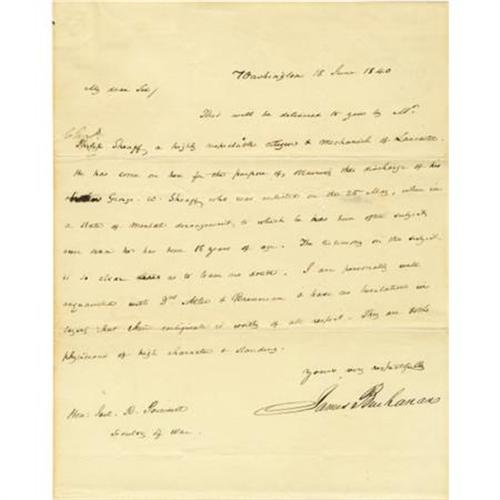 Washington 18 June 1840
My dear Sir/
This will be delivered to you by Mr.
Philip Sheaff, a highly respectable citizen & mechanick of Lancaster.
He has come on here for the purpose of, the discharge of his
George W. Sheaff, who was enlisted on the 25 May, when in
a state of mental derangement, to which he has been often subject,
ever since he has been 18 years of age. The testimony on the subject
is so clear as to leave no doubt. I am personally well
acquainted with Drs. Atlee & & have no hesitation in
saying that their certificate is worthy of all respect. They are both
physicians of high character & standing.
yours very respectfully
James Buchanan
Hon: Joel R. Poinsett
Secretary of War